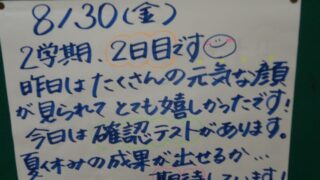 8/30(金)
2学期、2日目です
昨日はたくさんの元気な顔
が見られてとても嬉しかったです!
今日は確認テストがあります。
夏休みの成果が出せるか…
期待しています!